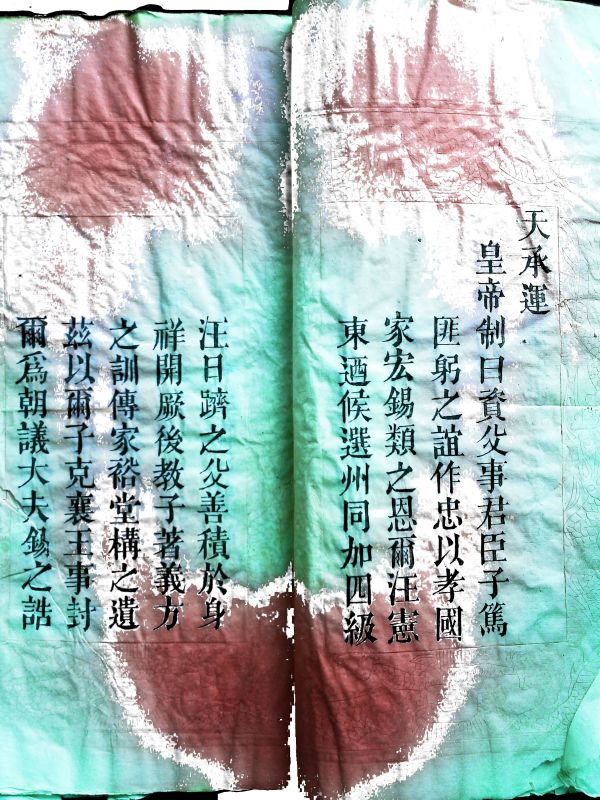 天承運
皇帝制曰資父事君臣子篤
匪躬之誼作忠以孝國
家宏錫類之恩爾汪憲
東迺候選州同加四級
汪日躋之父善積於身
祥開厥後教子著義方
之訓傳家裕堂構之遺
茲以爾子克襄王事封
爾為朝議大夫錫之誥